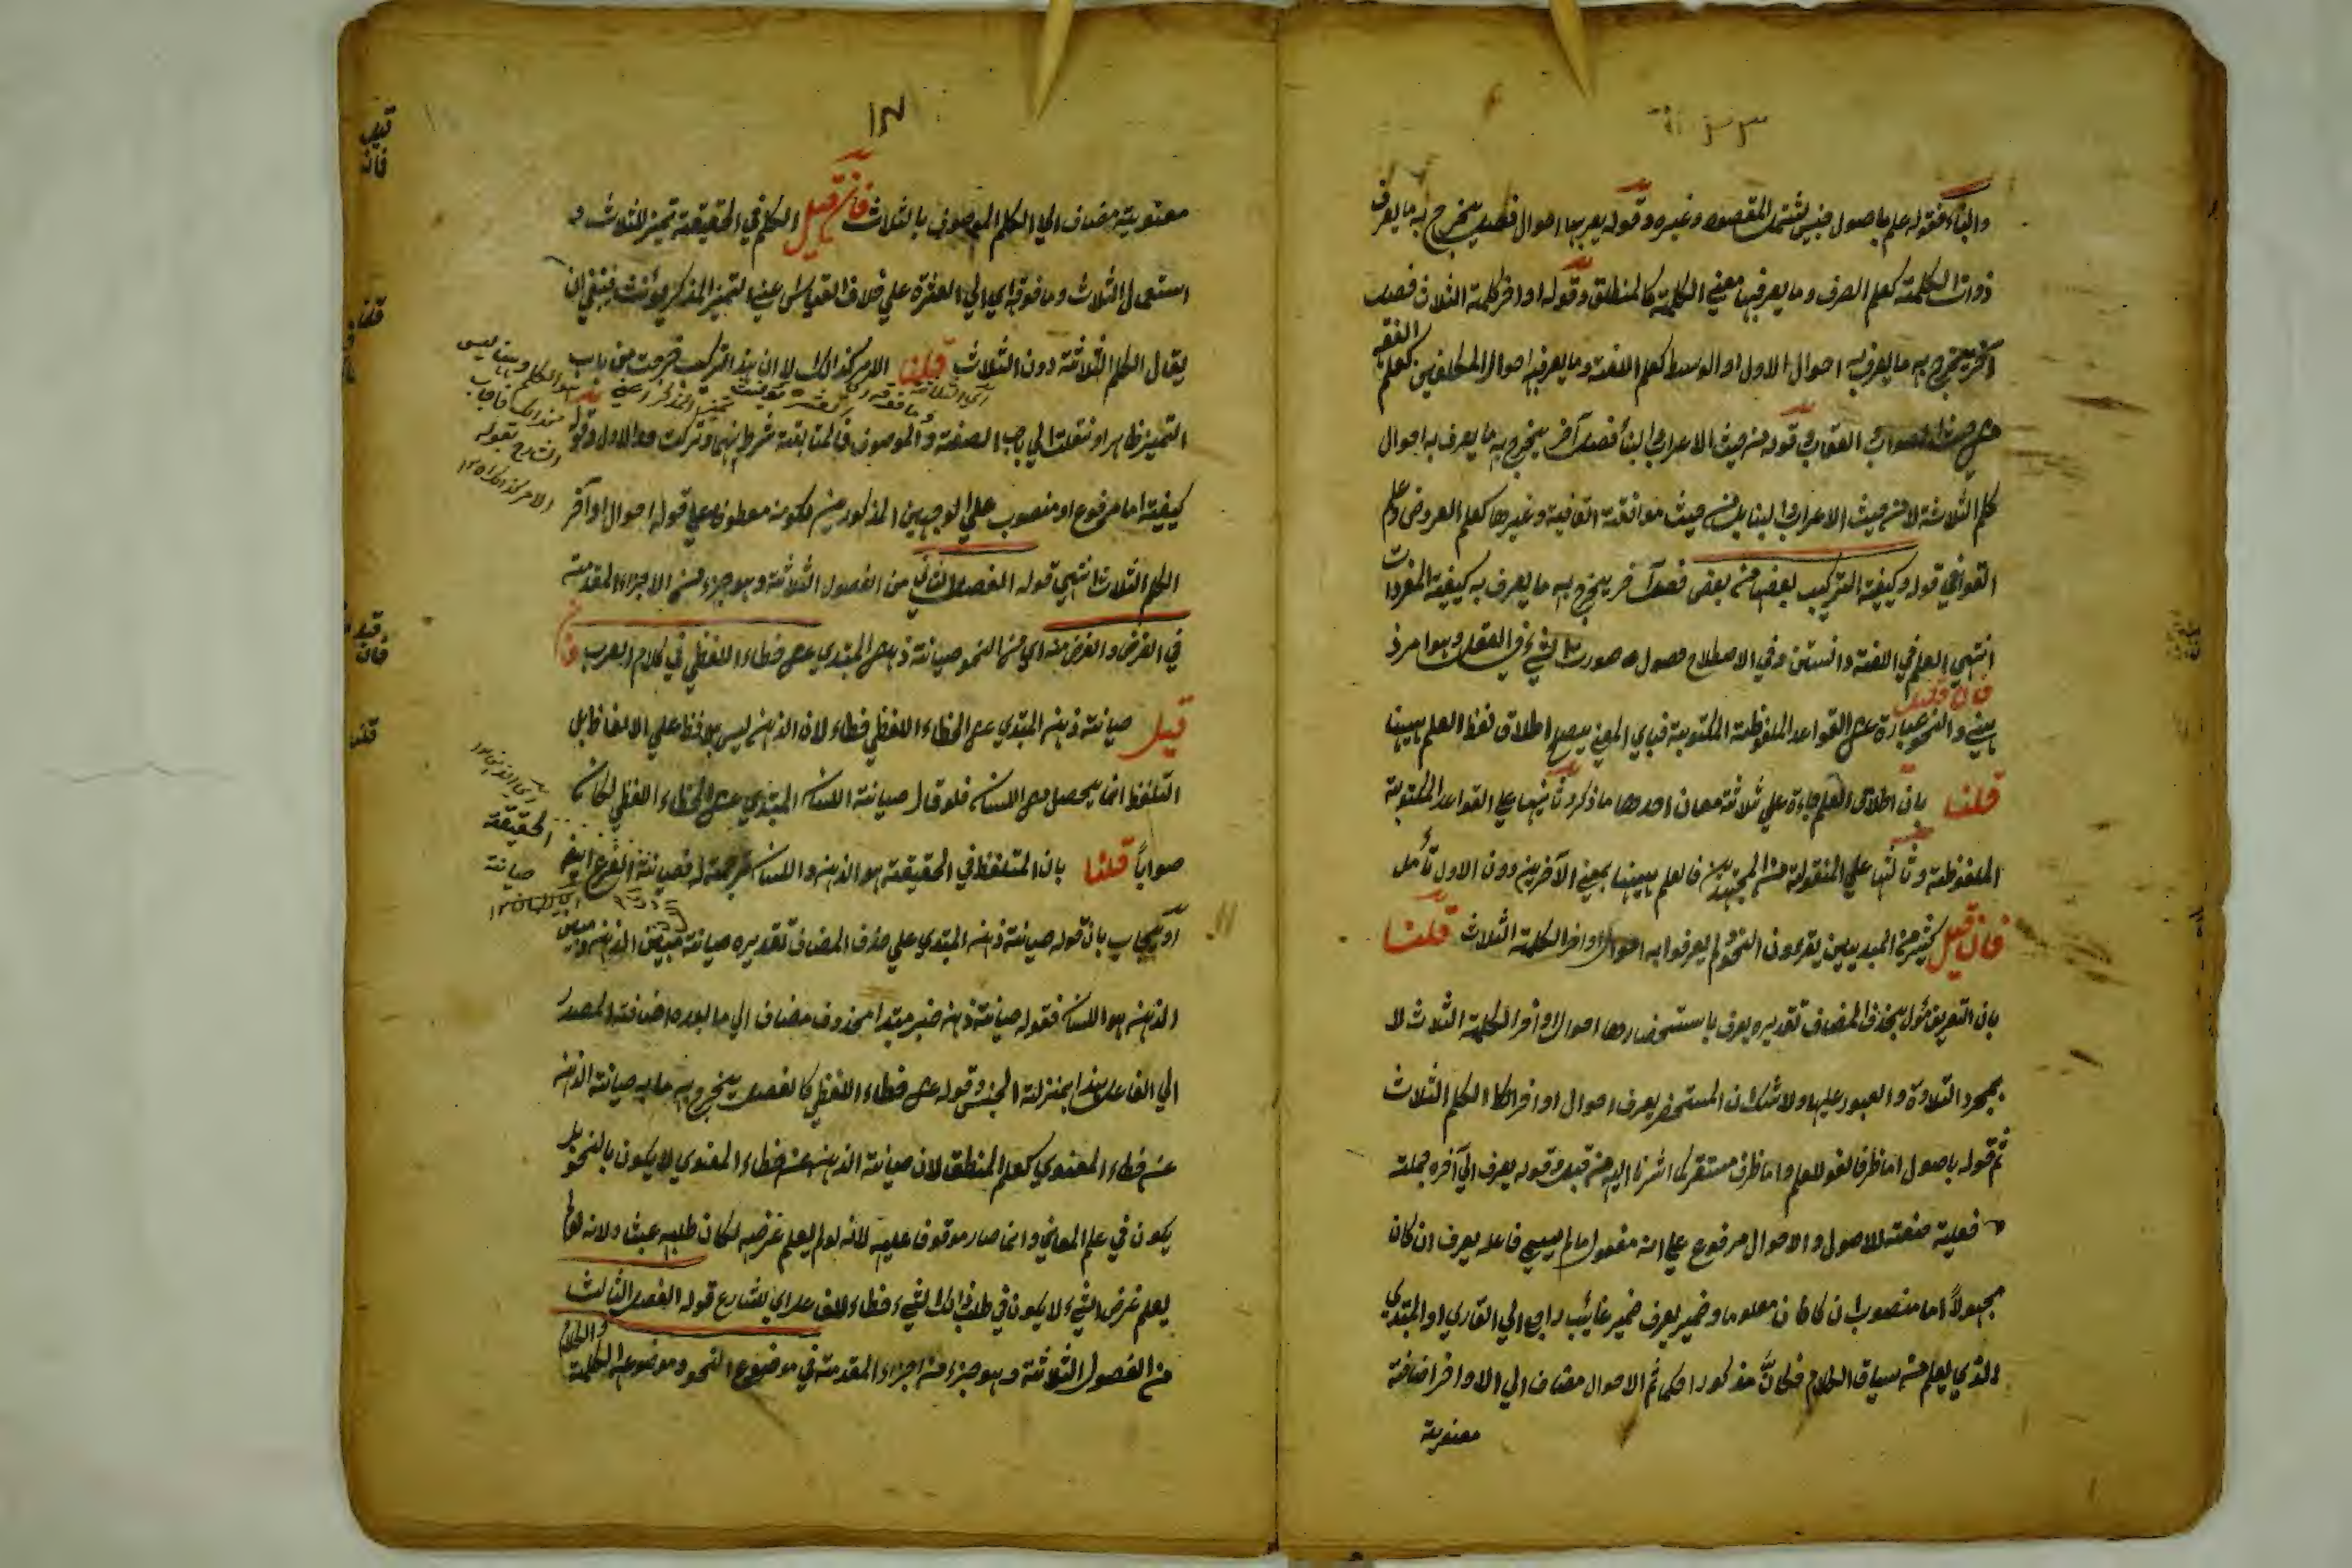 والبناء فقوله علم باصول جنس يشتمل المقصود وغيره وقوله يعرف بها احوال فصل يخرج به ما يعرف
ذوات الكلمة كعلم الصرف وما يعرف بها معنى الكلمة كالمنطق وقوله اواخر كلمة الثلاث فصل
آخر يخرج به ما يعرف به احوال الاول او الوسط كعلم اللغة وما يعرف به احوال المكلفين كعلم الفقه
من حيث الصواب والعقاب وقوله من حيث الاعراب والبناء فصل آخر يخرج به ما يعرف به احوال
كلم الثلاثة لا من حيث الاعراب والبناء بل من حيث موافقة القافية وغيرها كعلم العروض وعلم
القوافي قوله وكيفية التركيب بعضها من بعض فصل آخر يخرج به ما يعرف به كيفية المفردات
انتهى العلم في اللغة دانستن وفي الاصطلاح حصول صورت الشيء في العقل وهو امر ذ
فان قيل
هني والنحو عبارة عن القواعد الملفوظة المكتوبة فباي المعنى يصح اطلاق لفظ العلم ههنا
قلنا بان اطلاق العلم جاءة على ثلاثة معان احدها ما ذكر وثانيها على القواعد المكتوبة
الملفوظة وثالثها على المنقولة من المجتهدين فالعلم ههنا بمعنى الآخرين دون الاول تأمل
فان قيل كثير من المبتديين يقرءون النحو ولم يعرفوا به احوال اواخر الكلمة الثلاث قلنا
بان التعريف مؤل بحذف المضاف تقديره يعرف باستحضارها احوال اواخر الكلمة الثلاث لا
بمجرد التلاوة والعبور عليها ولا شك ان المستحضر يعرف احوال اواخر الكلم الثلاث
ثم قوله باصول اما ظرف لغو للعلم واما ظرف مستقر كما اشرنا اليه من قبل وقوله يعرف الى آخره جملة
فعلية صفة للاصول والاحوال مرفوع على انه مفعول ما لم يسمى فاعله يعرف ان كان
مجهولاً اما منصوب ان كان معلوما وضمير يعرف ضمير غائب راجع الى القاري او المبتدي
الذي يعلم من سياق الكلام فكان مذكورا حكما ثم الاحوال مضاف الى الاواخر اضافة
معنوية
معنوية مضاف الى الكلم الموصوف بالثلاث فان قيل الكلم في الحقيقة تميز للثلاث و
استعمال الثلاث وما فوقه اي الى العشرة على خلاف القياس عني التميز المذكر يؤنث فينبغي ان
يقال الكلم الثلاثة دون الثلاث قلنا الامر كذالك لا ان هذا التركيب خرجت من باب
التميز ظاهرا ونقلت الى باب الصفة والموصوف فالمتابعة شرط بينهما وتركت والاول وقوله
كيفية اما مرفوع او منصوب على الوجهين المذكورين لكونه معطوف على قوله احوال اواخر
الكلم الثلاث انتهى قوله الفصل الثاني من الفصول الثلاثة وهو جزء من الاجزاء المقدمة
في الغرض والغرض منه اي من النحو صيانة ذهن المبتدي عن خطاء اللفظي في كلام العرب فان
قيل صيانة ذهن المبتدي عن الخطاء اللفظي خطاء لان الذهن ليس بلافظ على الالفاظ بل
التلفظ انما يحصل من اللسان فلو قال صيانة اللسان المبتدي عن الخطاء اللفظي لكان
صواباً قلنا بان المتلفظ في الحقيقة هو الذهن واللسان ترجمة له فصيانة الفرع
او يجاب بان قوله صيانة ذهن المبتدي على حذف المضاف تقديره صيانة مبين الذهن ومبين
الذهن هو اللسان فقوله صيانة ذهن خبر مبتدا محذوف مضاف الى ما بعده اضافة المصدر
الى الفاعل هذا بمنزلة الجنس وقوله عن خطاء اللفظي كالفصل يخرج به ما به صيانة الذهن
عن خطاء المعنوي كعلم المنطق لان صيانة الذهن عن خطاء المعنوي لا يكون بالنحو بل
يكون في علم المعاني وانما صار موقوفا عليه لانه لو لم يعلم غرضه لكان طلبه عبث ولانه لو لم
يعلم غرض الشيء لا يكون في طلب ذالك الشيء خطاء للفاعل اي للشارع قوله الفصل الثالث
من الفصول الثلاثة وهو جزء من اجزاء المقدمة في موضوع النحو وموضوعه الكلمة والكلام
قيل
فان
الحقيقة
صيانة